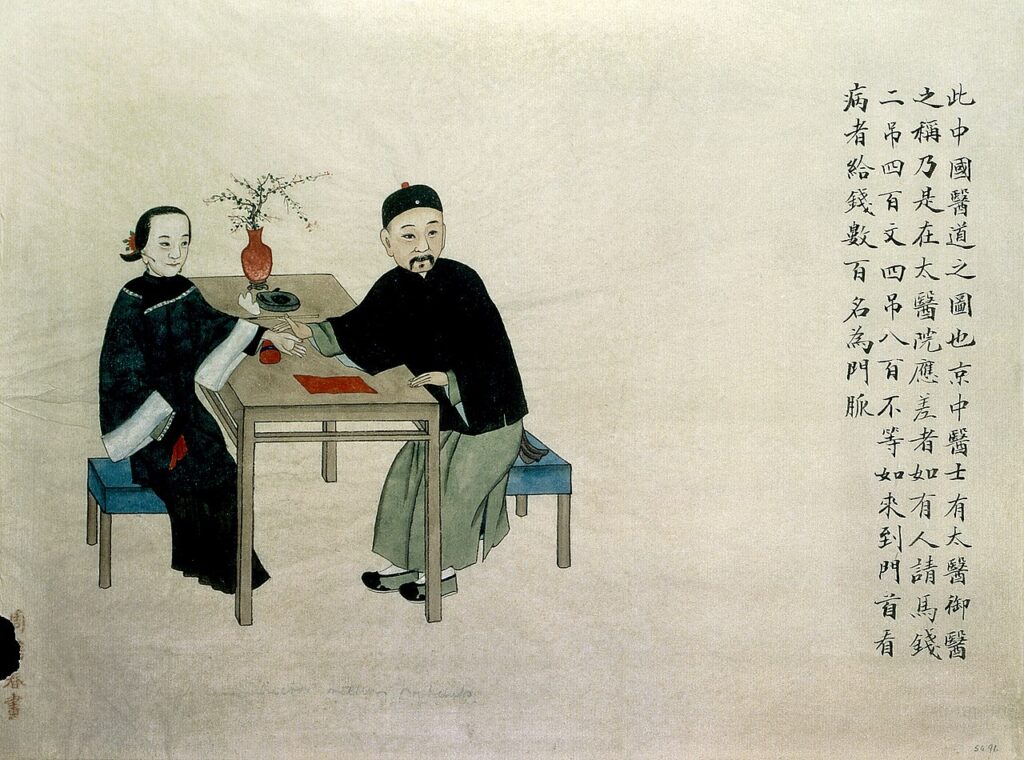 此中國醫道之圖也京中醫士有太醫御醫
之稱乃是在太醫院應差者如有人請馬錢
二吊四百文四吊八百不等如來到門首看
病者給錢數百名為門脈
周
春畫
54.91.